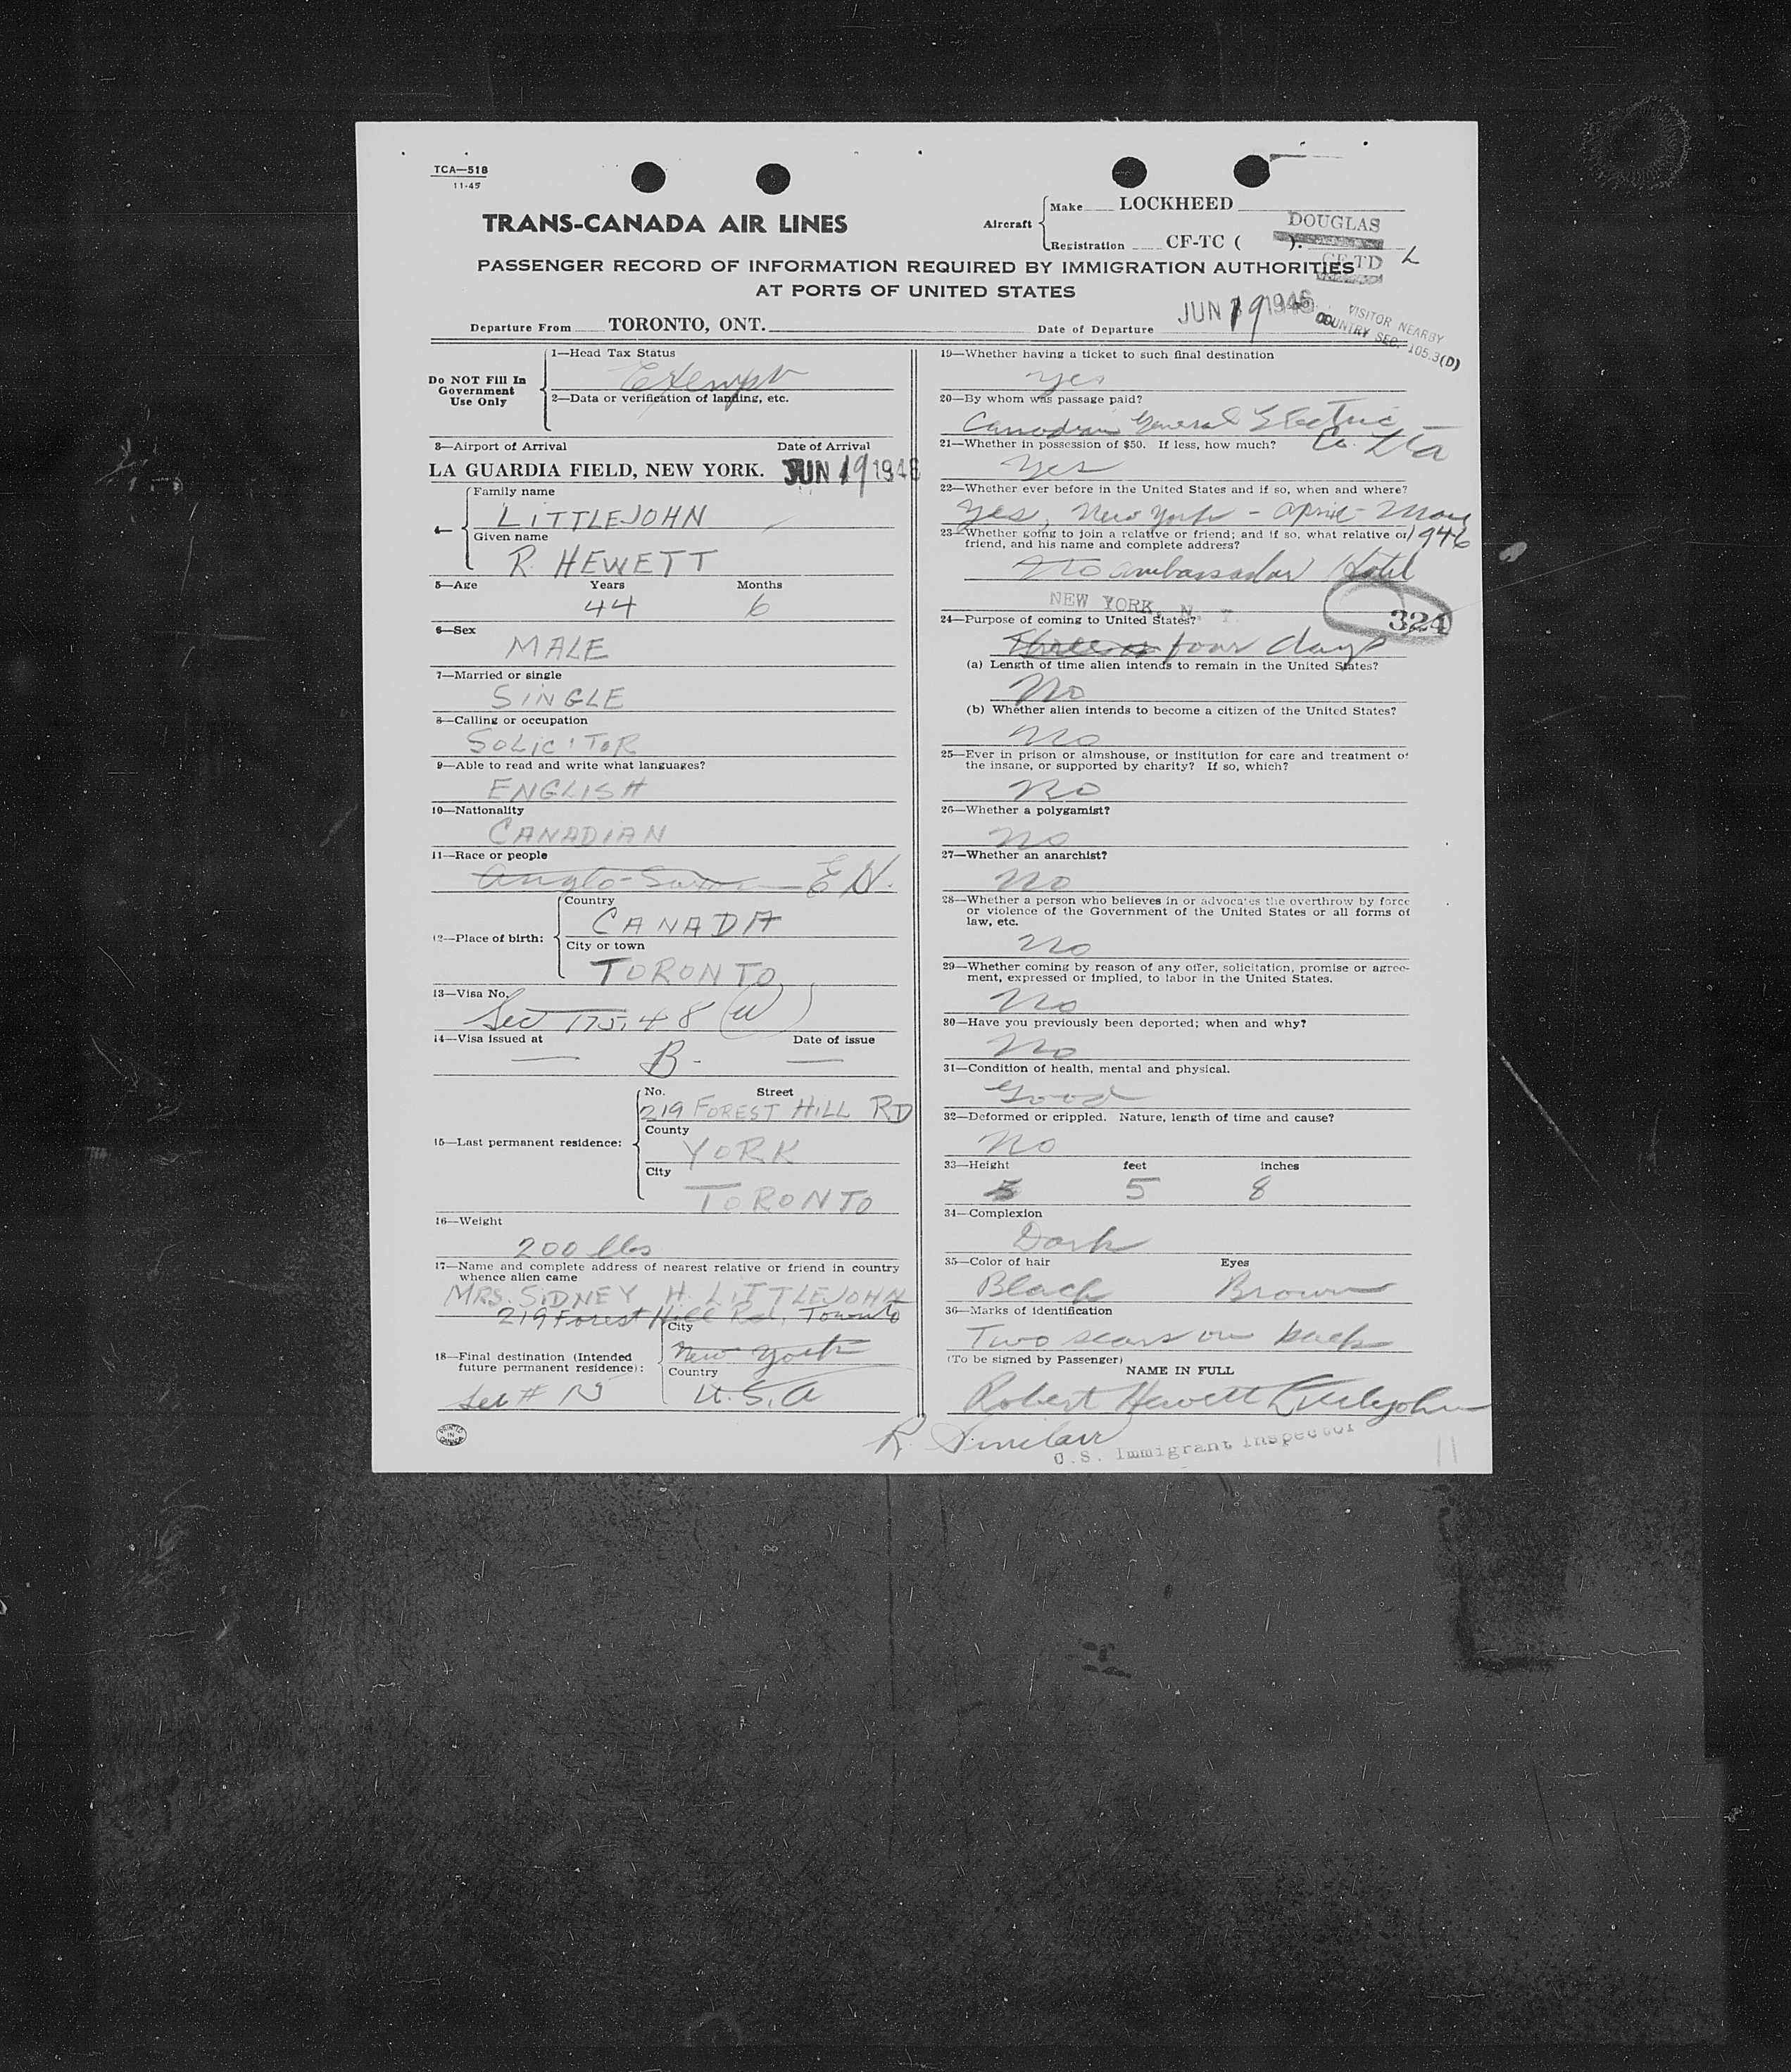 TCA—518
11-45
TRANS-CANADA AIR LINES
Aircraft
Make LOCKHEED
DOUGLAS
Registration CF-TC ( ).
CF-TD L
PASSENGER RECORD OF INFORMATION REQUIRED BY IMMIGRATION AUTHORITIES
AT PORTS OF UNITED STATES
Departure From TORONTO, ONT.
Date of Departure JUN 19 1946
VISITOR NEARBY
COUNTRY SEC. 105.3(D)
Do NOT Fill In
Government
Use Only
1—Head Tax Status
Exempt
2—Data or verification of landing, etc.
3—Airport of Arrival Date of Arrival
LA GUARDIA FIELD, NEW YORK. JUN 19 1946
4—
Family name
LITTLEJOHN
Given name
R. HEWETT
5—Age Years Months
44 6
6—Sex
MALE
7—Married or single
SINGLE
8—Calling or occupation
SOLICITOR
9—Able to read and write what languages?
ENGLISH
10—Nationality
CANADIAN
11—Race or people
Anglo-Saxon EN.
12—Place of birth:
Country
CANADA
City or town
TORONTO
13—Visa No.
Sec 175.48 (a)
14—Visa issued at Date of issue
— B- —
15—Last permanent residence:
No. Street
219 FOREST HILL RD
County
YORK
City
TORONTO
16—Weight
200 lbs
17—Name and complete address of nearest relative or friend in country
whence alien came
MRS. SIDNEY H. LITTLEJOHN
219 Forest Hill Rd, Toronto
18—Final destination (Intended
future permanent residence):
City
New York
Country
U.S.A
PRINTED
IN
CANADA
19—Whether having a ticket to such final destination
yes
20—By whom was passage paid?
Canadian General Electric
Co. Ltd
21—Whether in possession of $50. If less, how much?
Yes
22—Whether ever before in the United States and if so, when and where?
Yes, New York - April - May
1946
23—Whether going to join a relative or friend; and if so, what relative or
friend, and his name and complete address?
No ambassador Hotel
NEW YORK, N. Y.
324
24—Purpose of coming to United States?
Three or four days
(a) Length of time alien intends to remain in the United States?
No
(b) Whether alien intends to become a citizen of the United States?
No
25—Ever in prison or almshouse, or institution for care and treatment of
the insane, or supported by charity? If so, which?
No
26—Whether a polygamist?
No
27—Whether an anarchist?
No
28—Whether a person who believes in or advocates the overthrow by force
or violence of the Government of the United States or all forms of
law, etc.
No
29—Whether coming by reason of any offer, solicitation, promise or agree-
ment, expressed or implied, to labor in the United States.
No
30—Have you previously been deported; when and why?
No
31—Condition of health, mental and physical.
Good
32—Deformed or crippled. Nature, length of time and cause?
No
33—Height feet inches
5 5 8
34—Complexion
Dark
35—Color of hair Eyes
Black Brown
36—Marks of identification
Two scars on back
(To be signed by Passenger)
NAME IN FULL
Robert Hewett Littlejohn
R. Sinclair
U.S. Immigrant Inspector
11